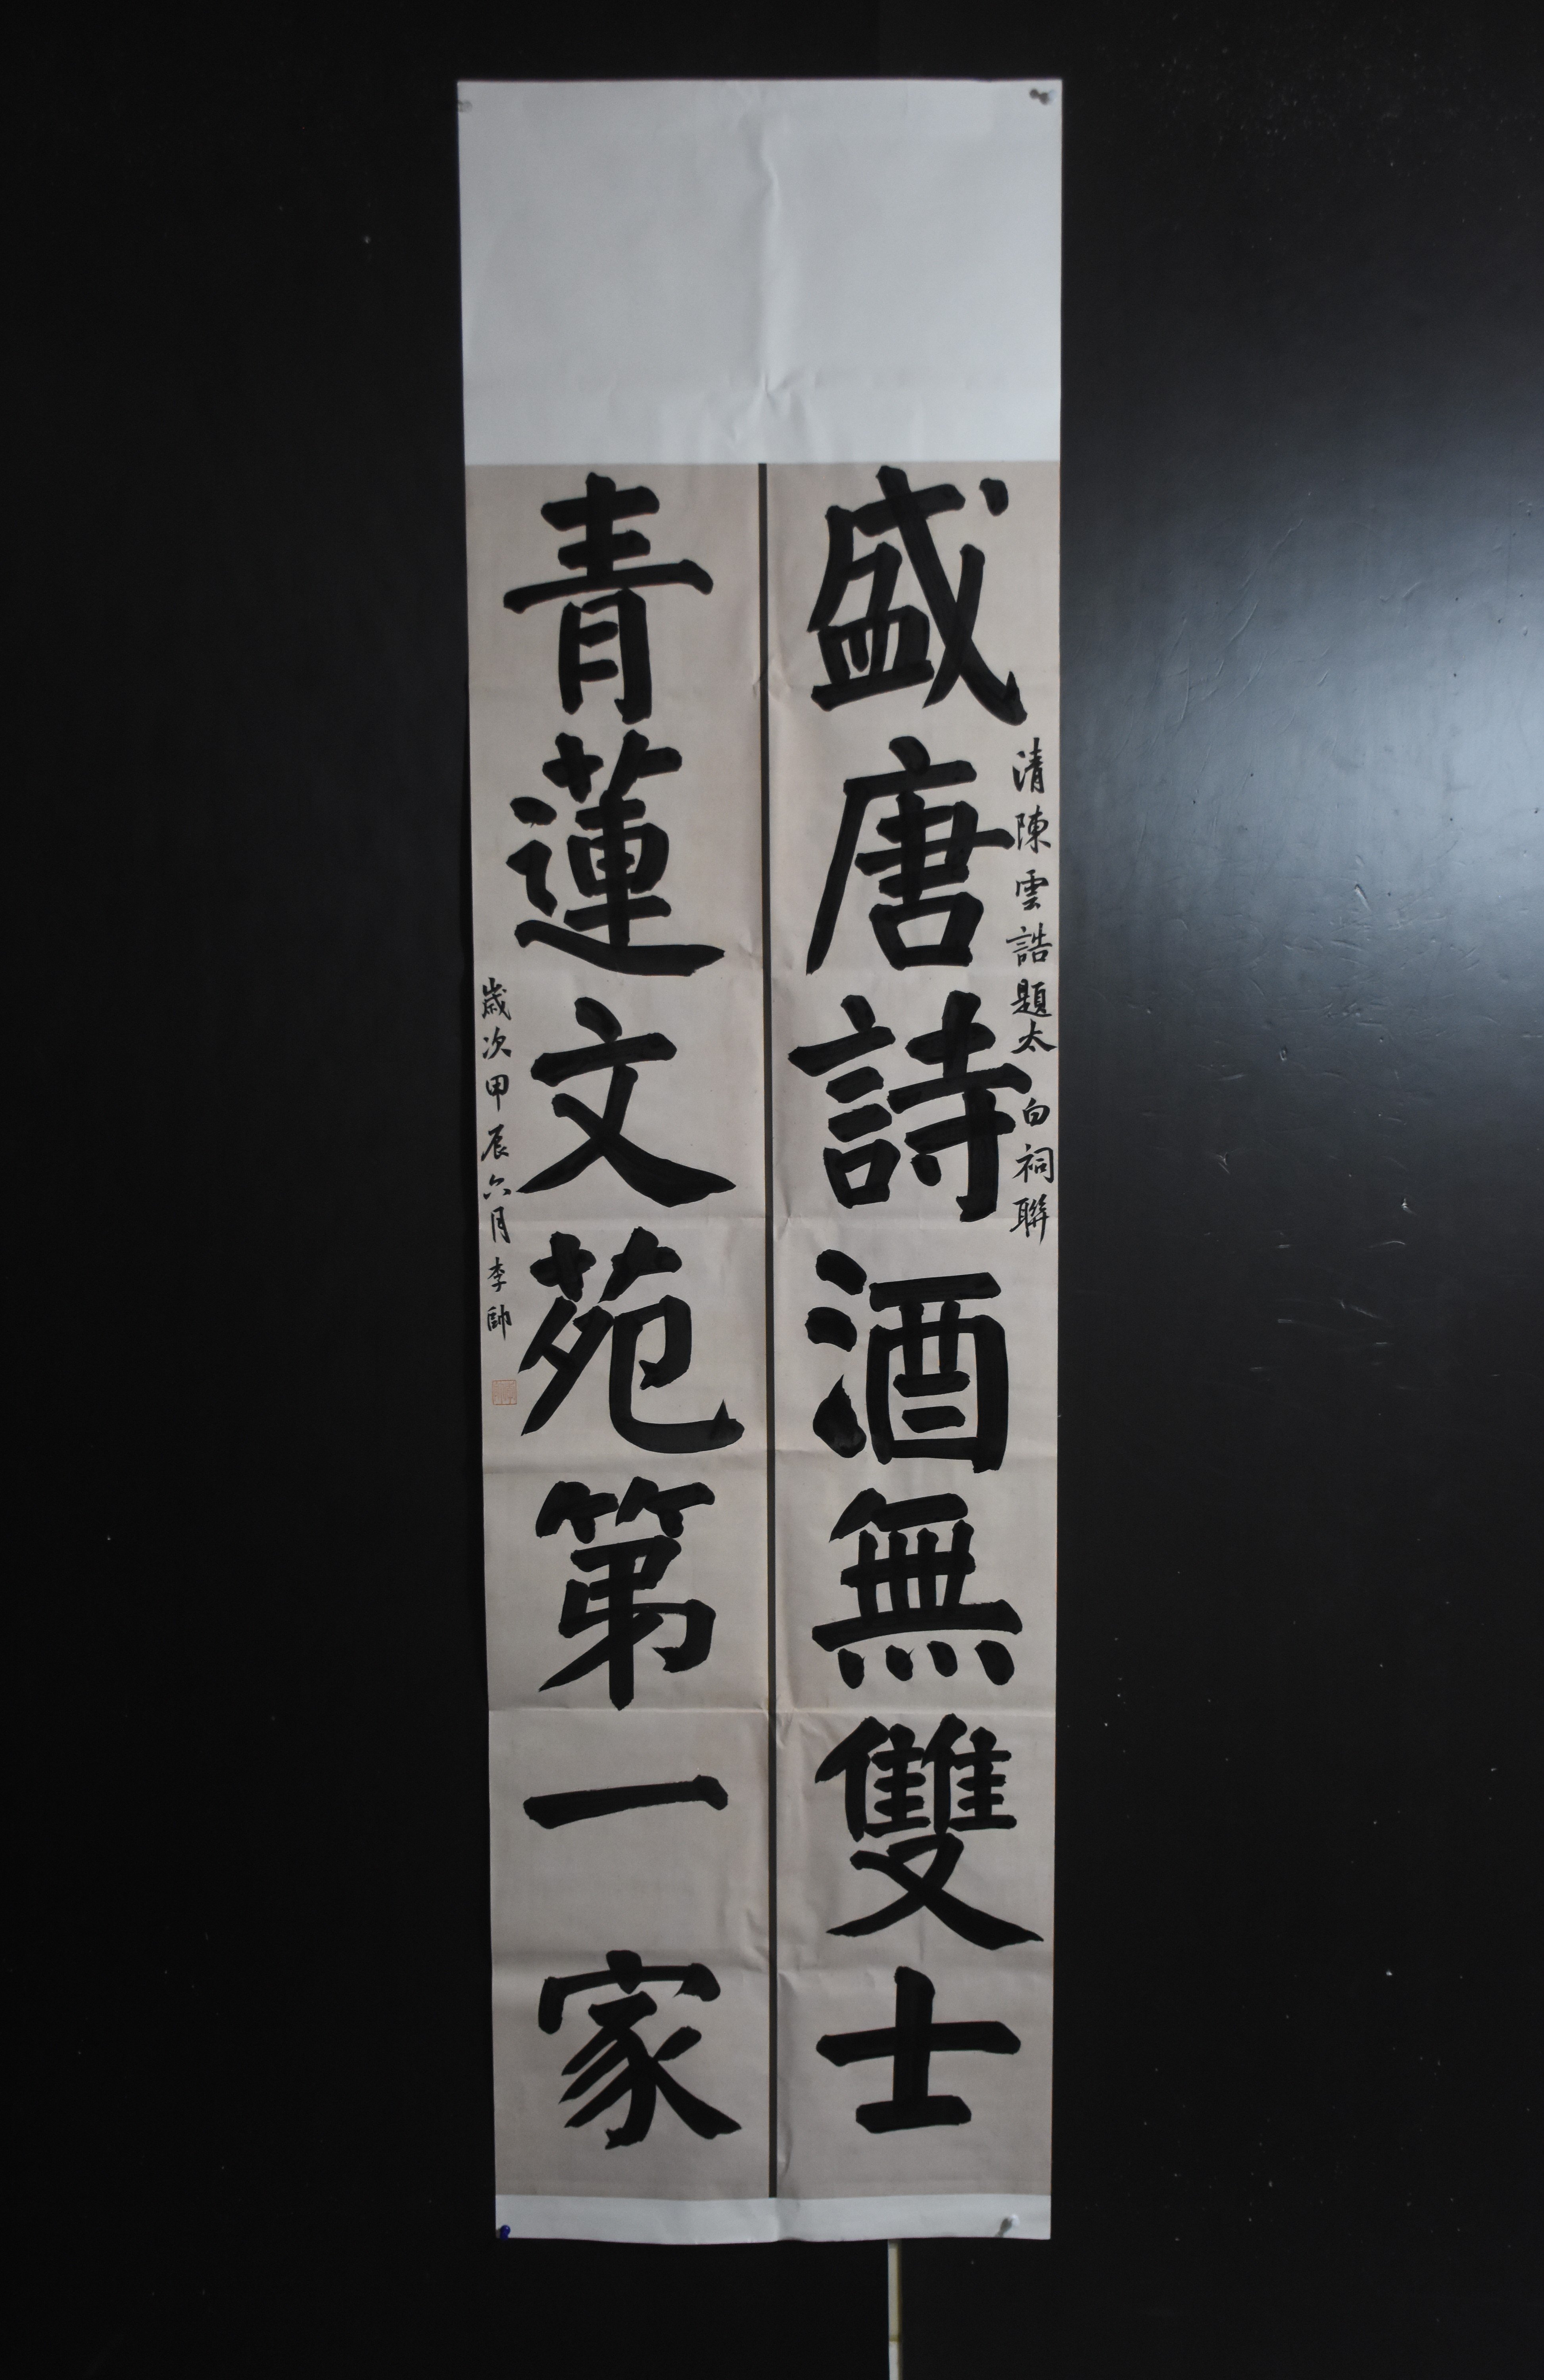 清陳雲誥題太白祠聯
盛唐詩酒無雙士
青蓮文苑第一家
歲次甲辰六月李帥